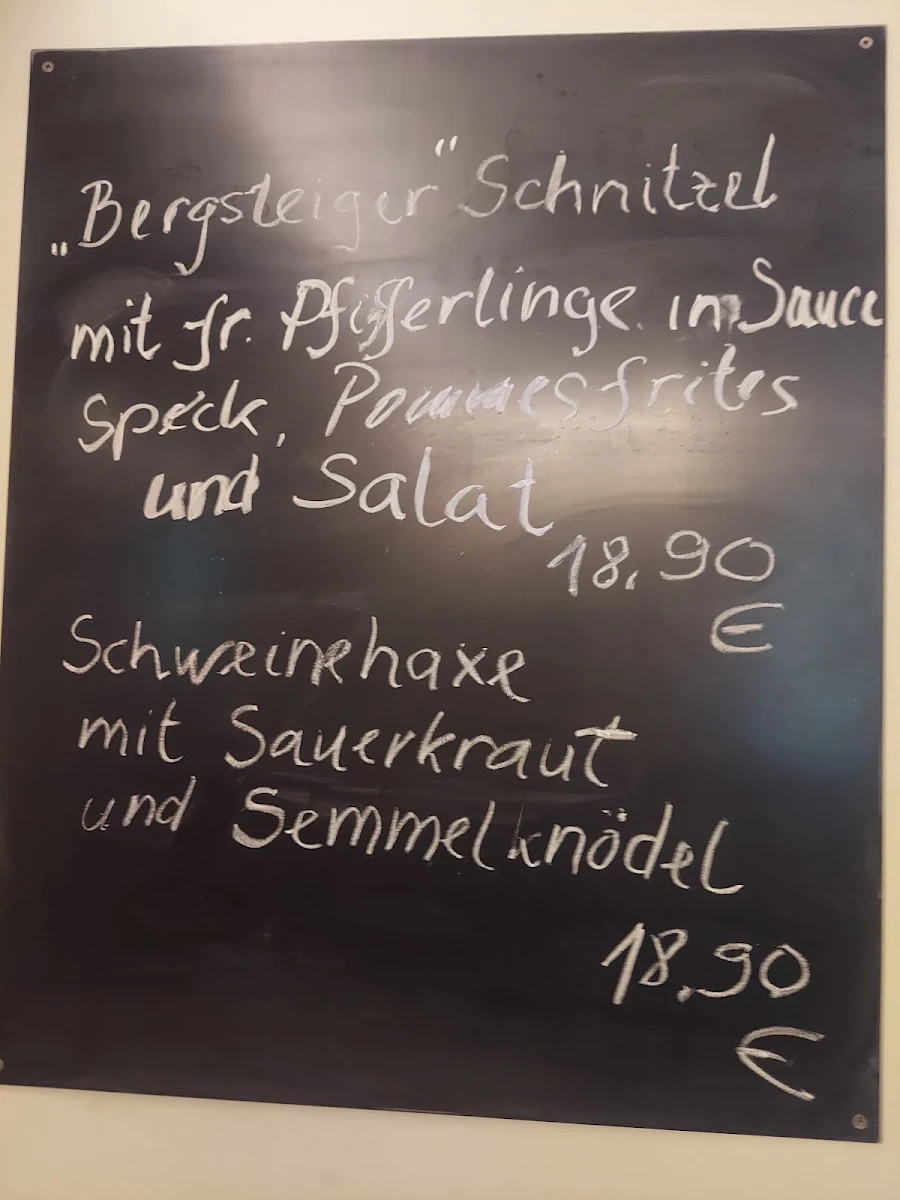 „Bergsteiger“ Schnitzel
mit fr. Pfifferlinge in Sauce
Speck, Pommes frites
und Salat
18,90
€
Schweinehaxe
mit Sauerkraut
und Semmelknödel
18,90
€